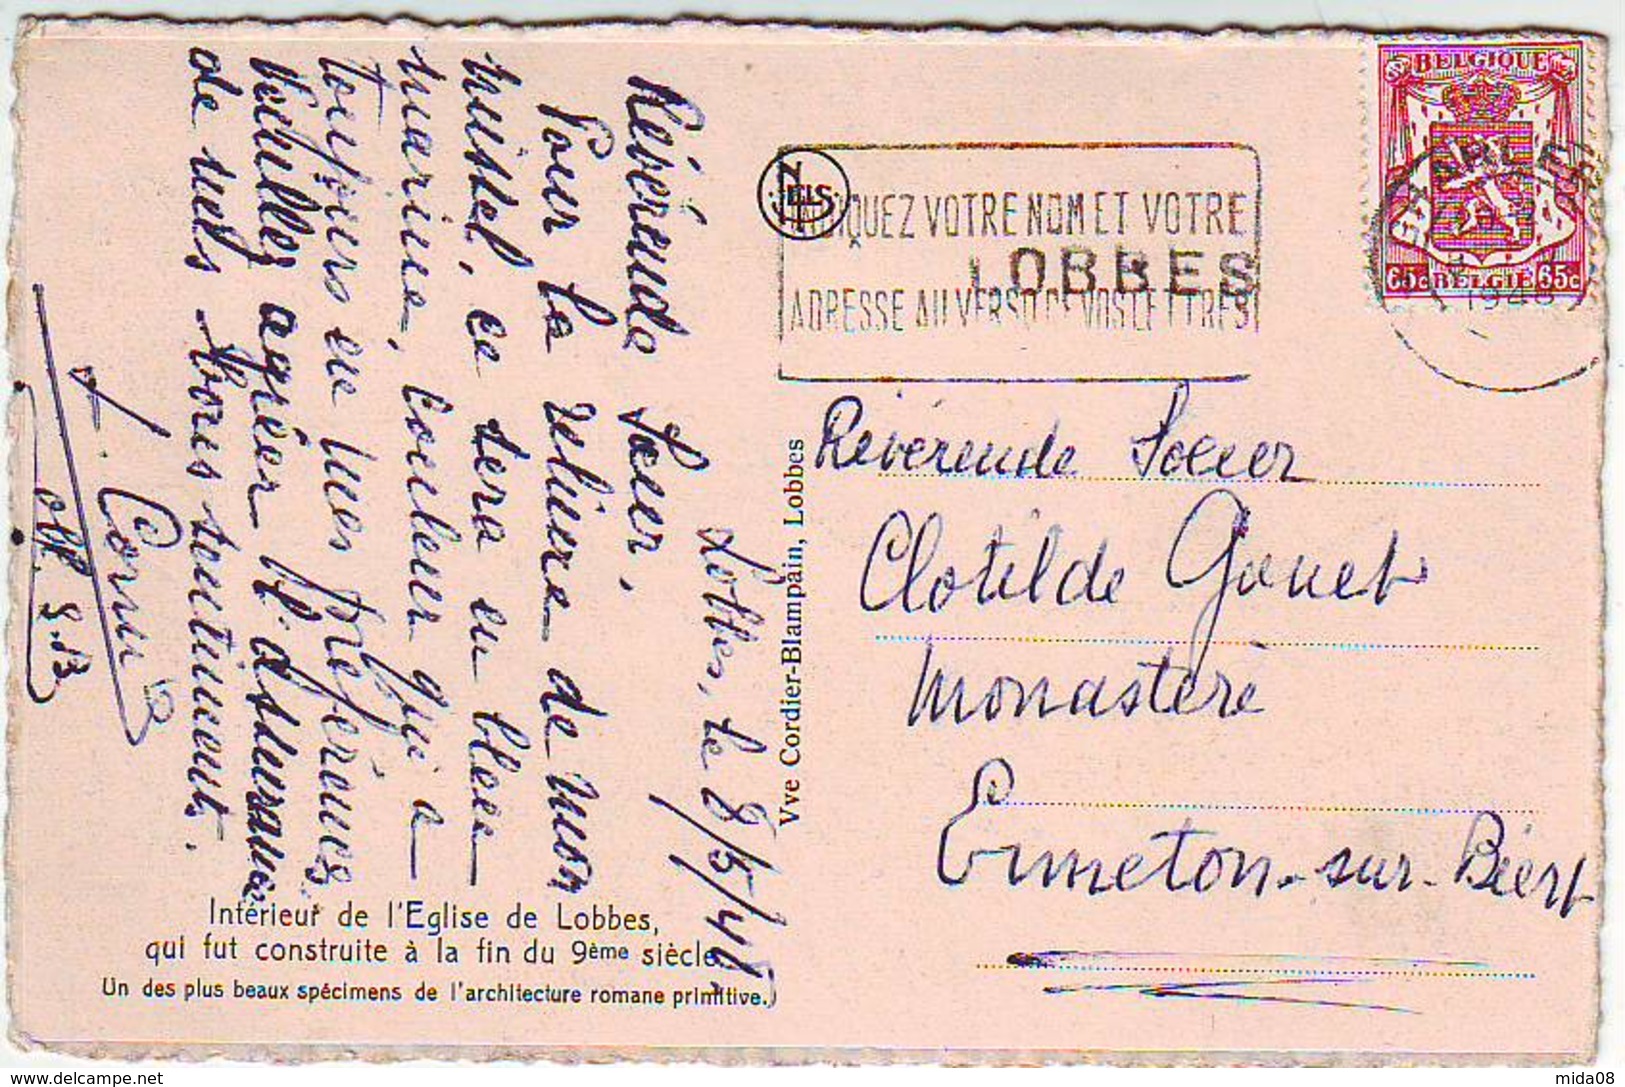 Lobbes, le 8/5/48
Révérende Soeur,
Pour la reliure de mon
missel, ce sera en bleu
marine, couleur qui a
toujours eu mes préférences
Veuillez agréer l'assurance
de mes bons sentiments.
INDIQUEZ VOTRE NOM ET VOTRE
ADRESSE AU VERSO DE VOS LETTRES
LOBBES
NELS
BELGIQUE
65c BELGIE 65c
1948
Vve Cordier-Blampain, Lobbes
Révérende Soeur
Clotilde Gouet
Monastère
Ermeton-sur-Biert
Intérieur de l'Eglise de Lobbes,
qui fut construite à la fin du 9ème siècle.
Un des plus beaux spécimens de l'architecture romane primitive.
www.delcampe.net
mida08